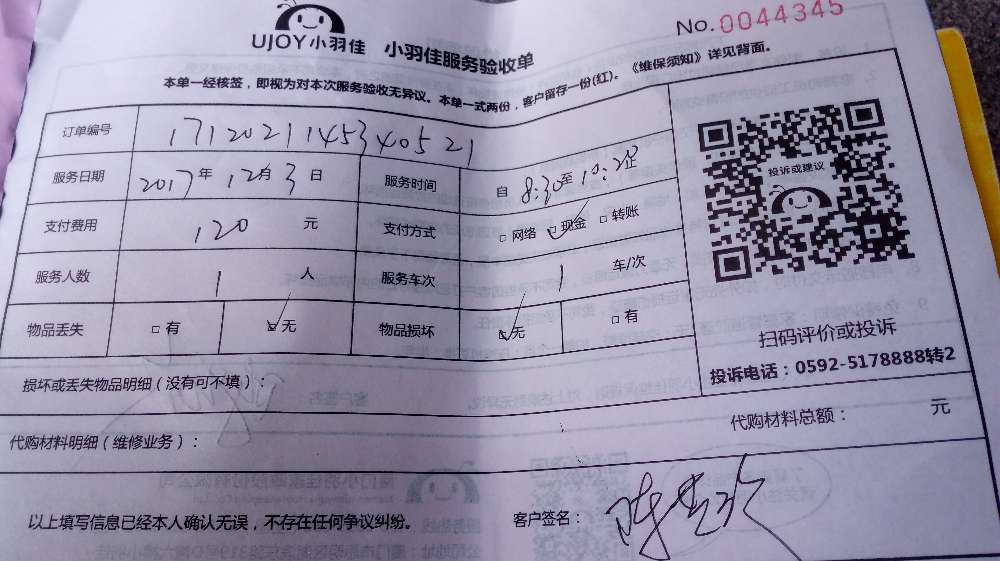 UJOY小羽佳 小羽佳服务验收单
No.0044345
本单一经核签，即视为对本次服务验收无异议。本单一式两份，客户留存一份(红)。《维保须知》详见背面。
订单编号 1712021145340521
服务日期 2017年12月3日 服务时间 自8:30至10:20止
支付费用 120元 支付方式 □网络 □现金 □转账
服务人数 1人 服务车次 1车/次
物品丢失 □有 □无 物品损坏 □无 □有
投诉或建议
扫码评价或投诉
投诉电话：0592-5178888转2
损坏或丢失物品明细（没有可不填）：
代购材料明细（维修业务）： 代购材料总额： 元
以上填写信息已经本人确认无误，不存在任何争议纠纷。 客户签名：